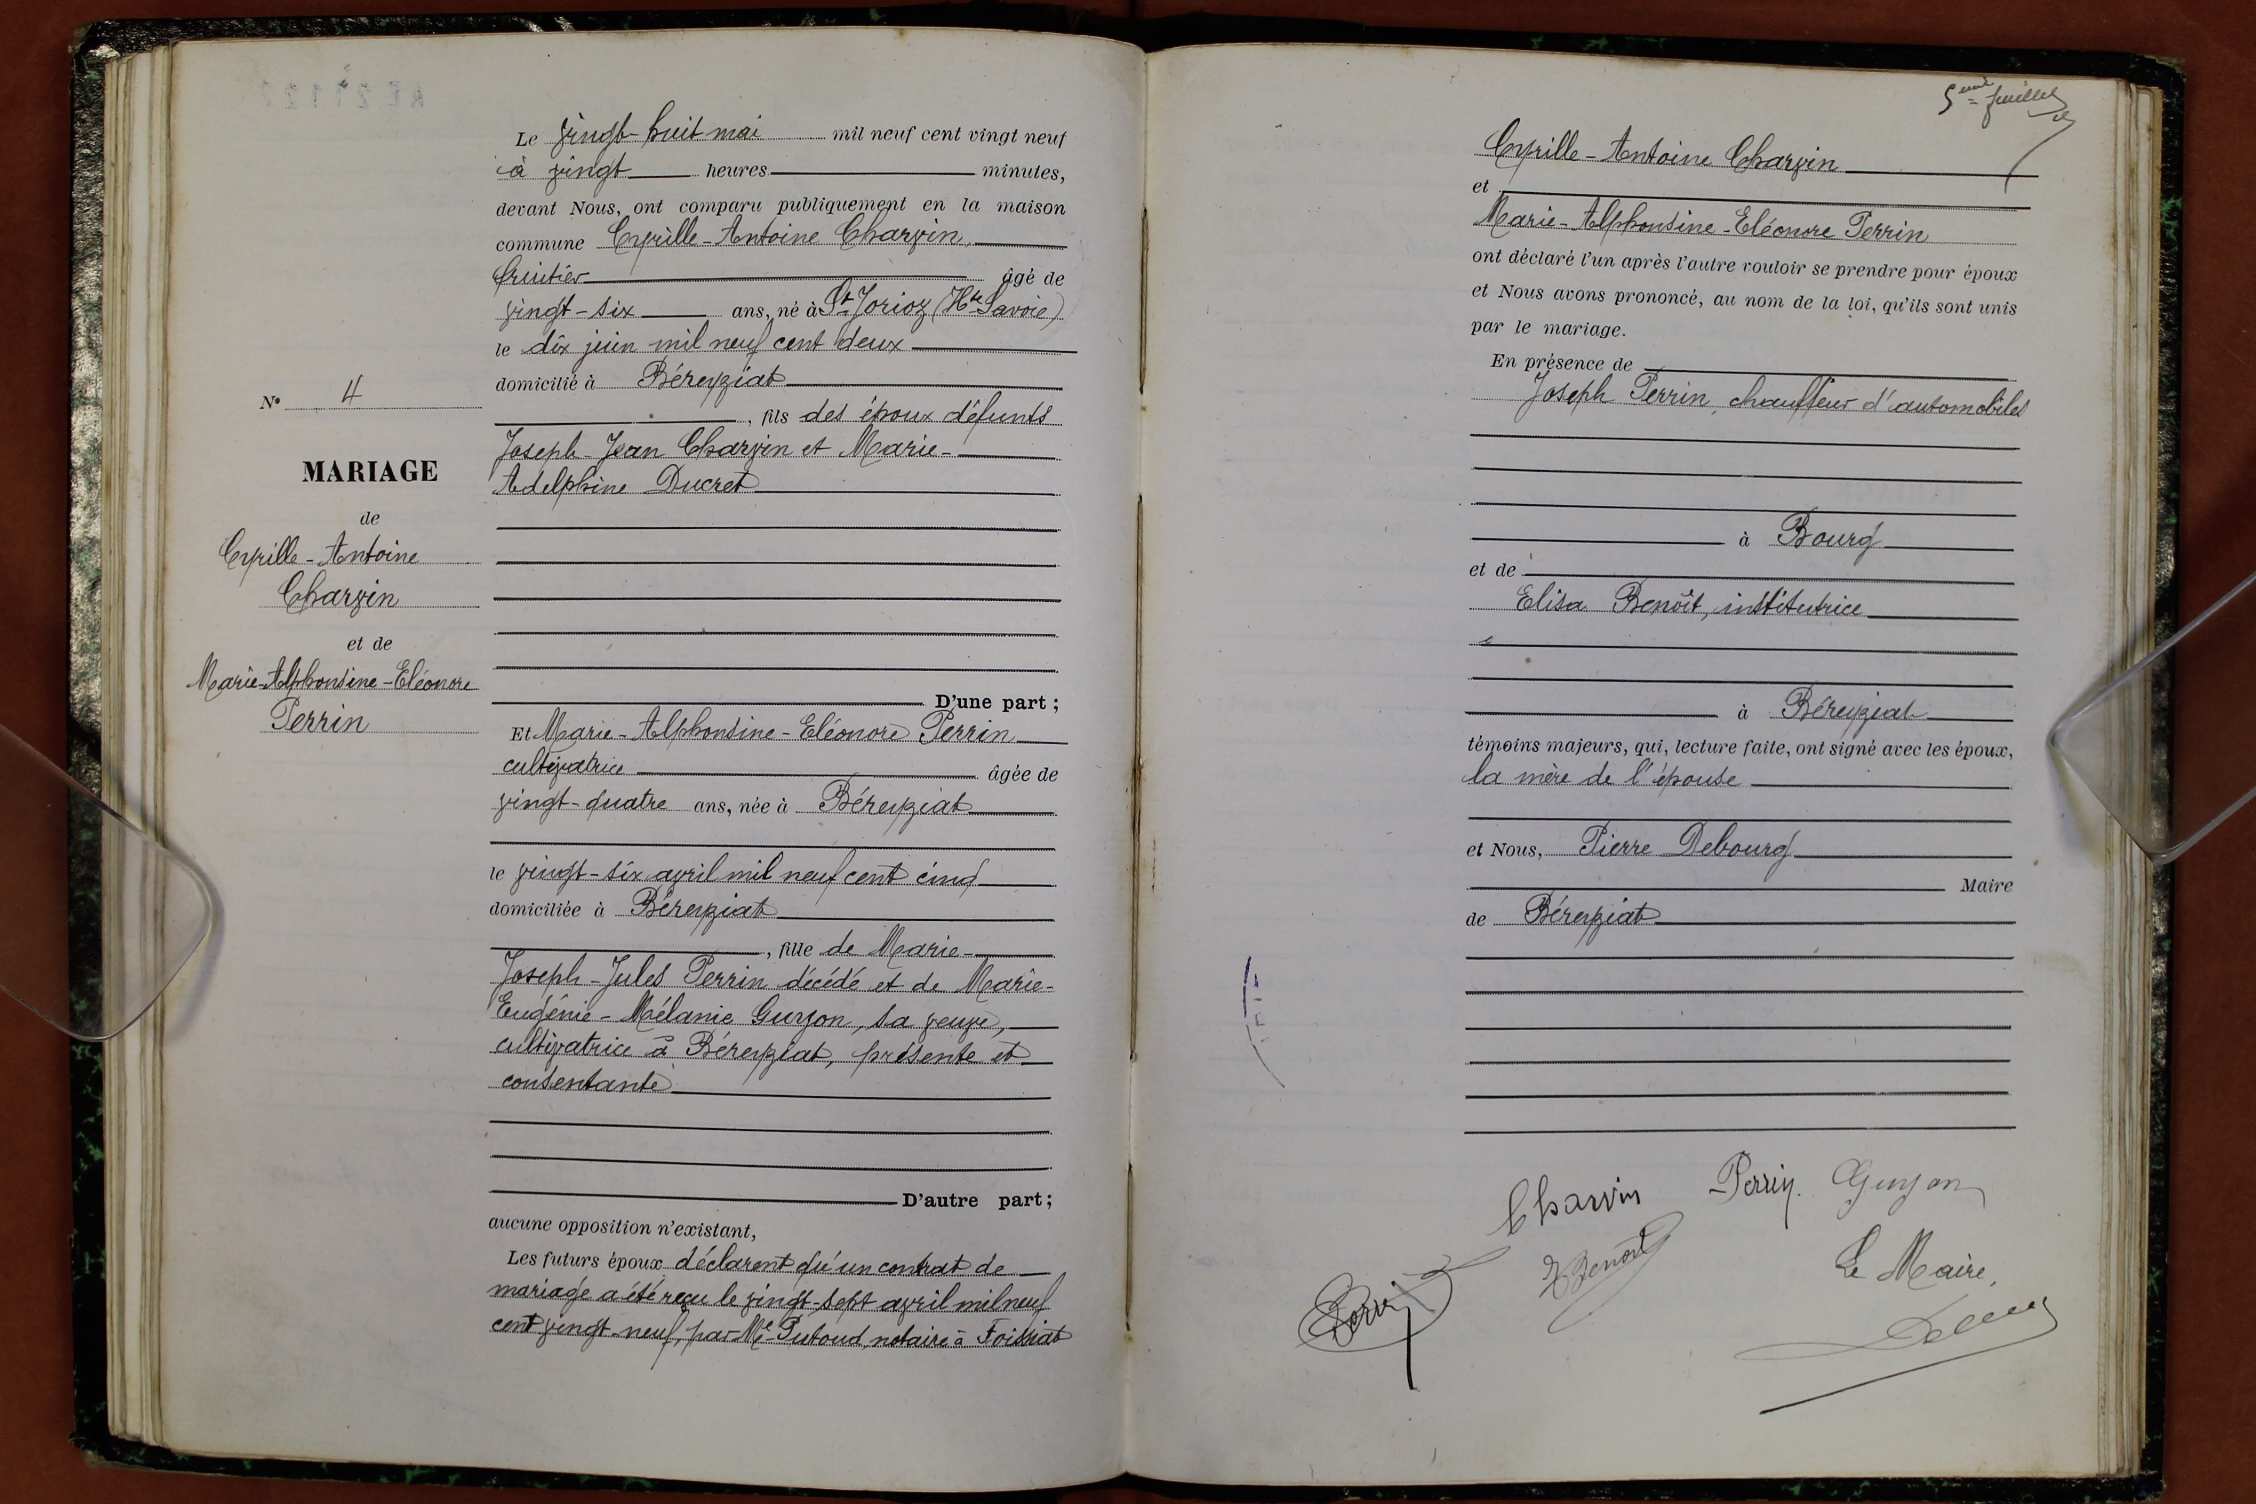 Le vingt-huit mai mil neuf cent vingt neuf
à vingt heures minutes,
devant Nous, ont comparu publiquement en la maison
commune Cyrille-Antoine Charvin,
fruitier âgé de
vingt-six ans, né à St Jorioz (Hte Savoie)
le dix juin mil neuf cent deux
domicilié à Béreyziat
, fils des époux défunts
Joseph-Jean Charvin et Marie-
Adelphine Ducret
D'une part;
Et Marie-Alphonsine-Eléonore Perrin
cultivatrice âgée de
vingt-quatre ans, née à Béreyziat
le vingt-six avril mil neuf cent cinq
domiciliée à Béreyziat
, fille de Marie-
Joseph-Jules Perrin décédé et de Marie-
Eugénie-Mélanie Guyon, sa veuve,
cultivatrice à Béreyziat, présente et
consentante
D'autre part;
aucune opposition n'existant,
Les futurs époux déclarent qu'un contrat de
mariage a été reçu le vingt-sept avril mil neuf
cent vingt-neuf, par Me Putoud, notaire à Foissiat
N° 4
MARIAGE
de
Cyrille-Antoine
Charvin
et de
Marie-Alphonsine-Eléonore
Perrin
5eme feuillet
Cyrille-Antoine Charvin
et
Marie-Alphonsine-Eléonore Perrin
ont déclaré l'un après l'autre vouloir se prendre pour époux
et Nous avons prononcé, au nom de la loi, qu'ils sont unis
par le mariage.
En présence de
Joseph Perrin, chauffeur d'automobiles
à Bourg
et de
Elisa Benoît, institutrice
à Béreyziat
témoins majeurs, qui, lecture faite, ont signé avec les époux,
la mère de l'épouse
et Nous, Pierre Debourg
Maire
de Béreyziat
Charvin Perrin. Guyon
E Benoît
Perrin
Le Maire,